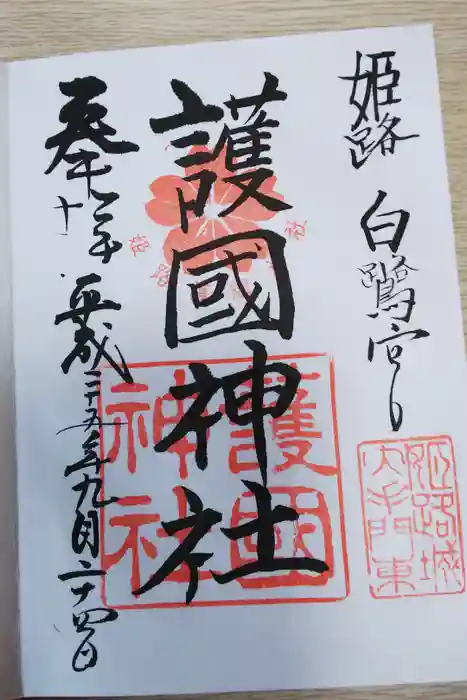 姫路 白鷺宮
護國神社
平成二十五年九月二十四日
護國神社
姫路城大手門東